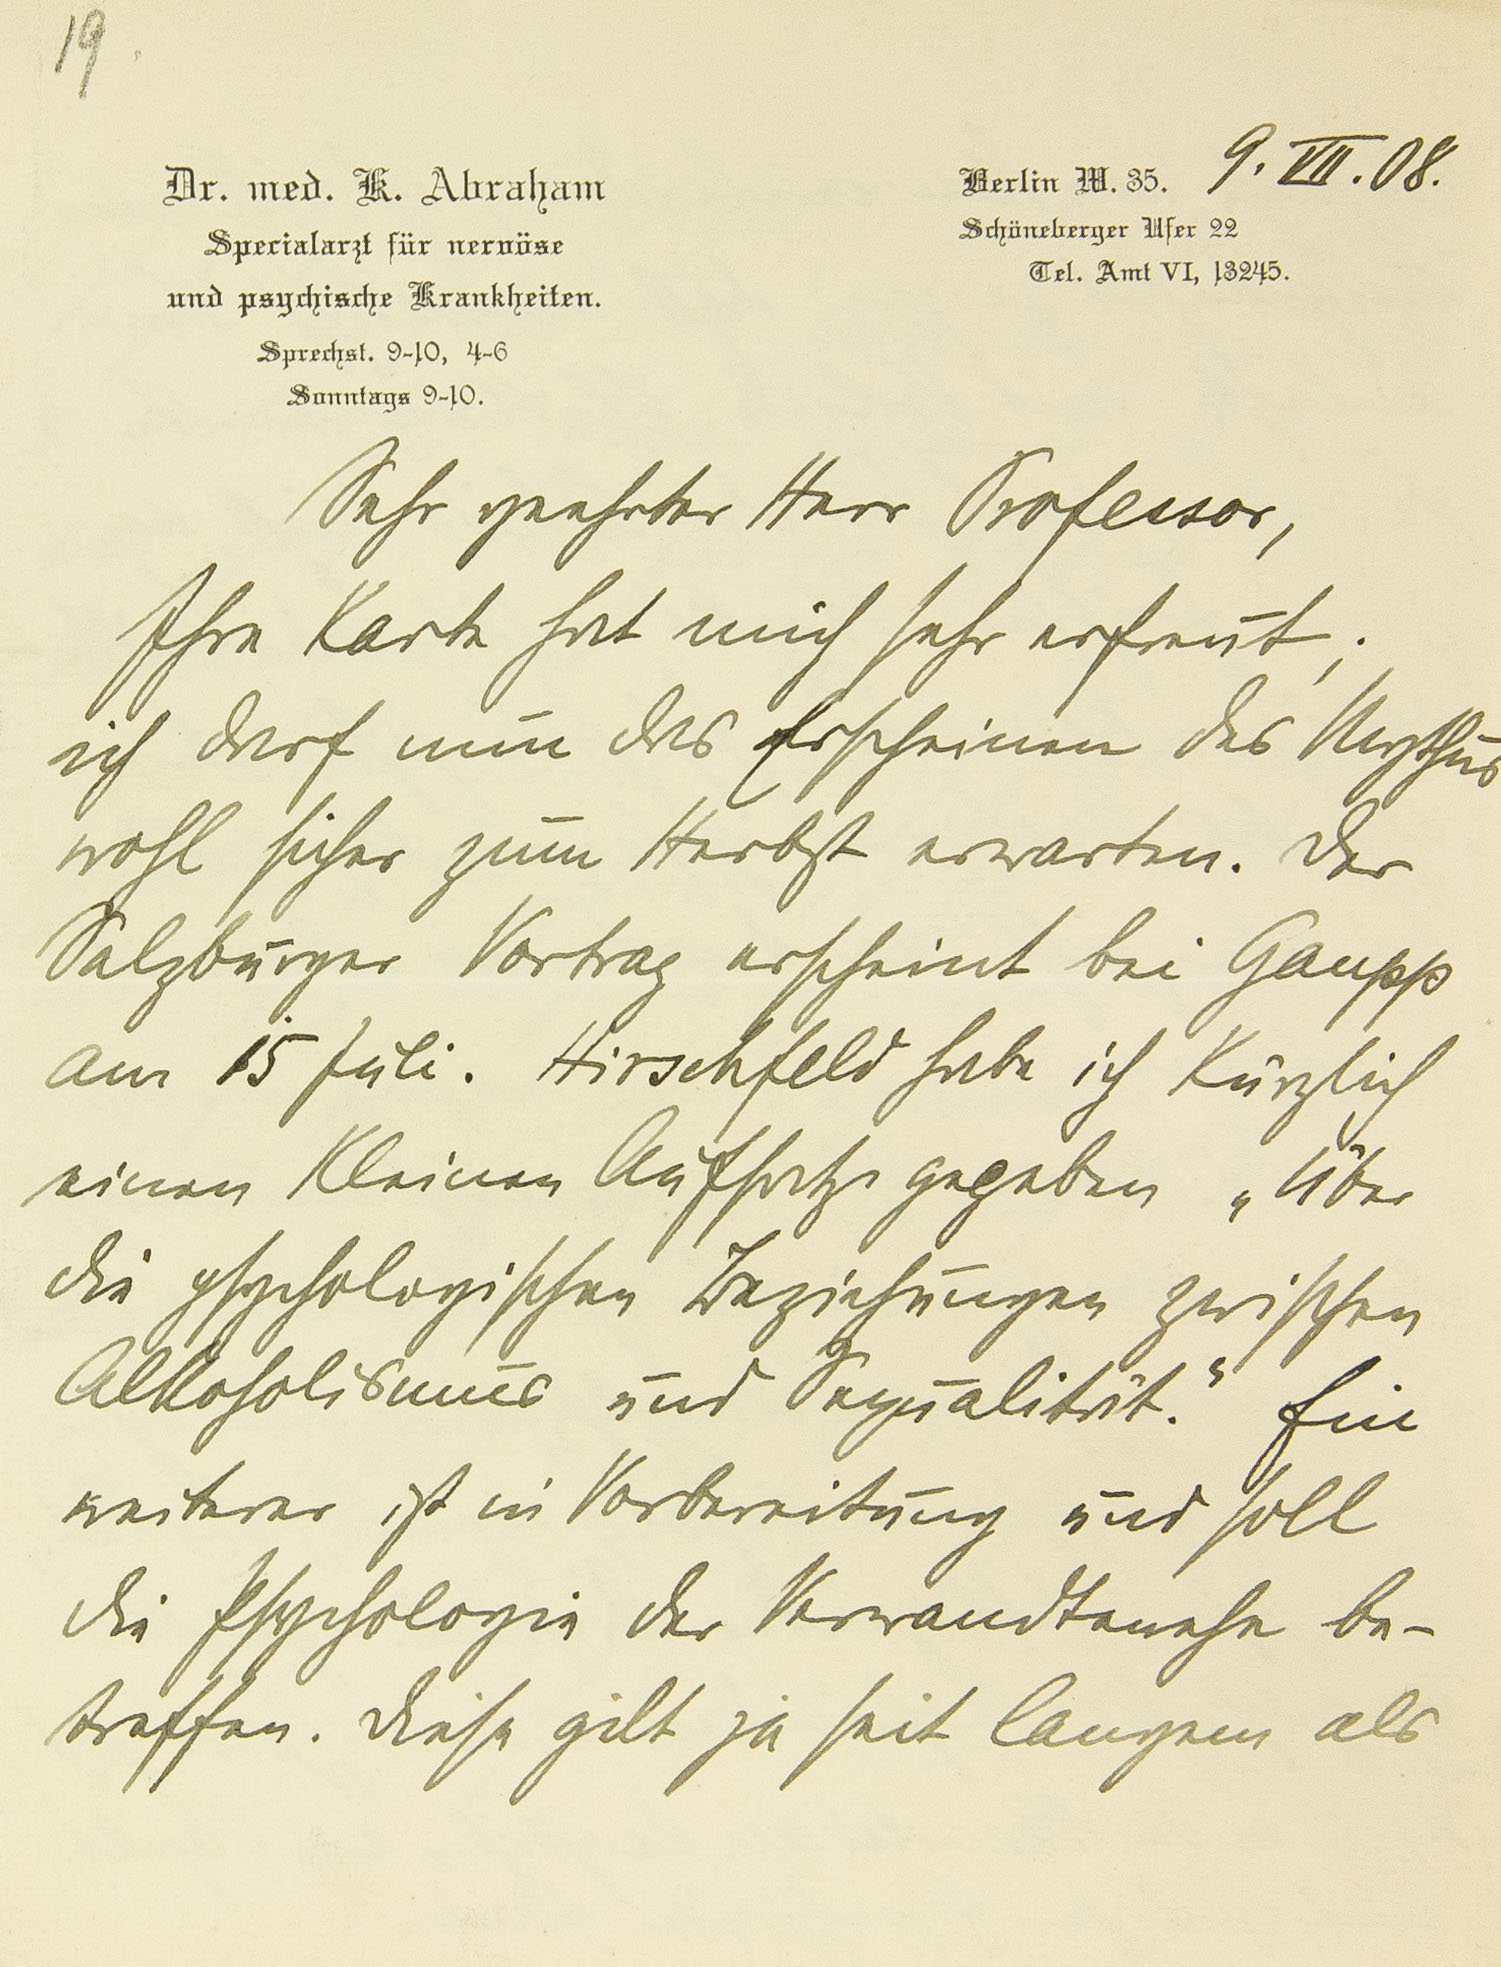 19.
Dr. med. K. Abraham
Specialarzt für nervöse
und psychische Krankheiten.
Sprechst. 9-10, 4-6
Sonntags 9-10.
Berlin W. 35. 9. VII. 08.
Schöneberger Ufer 22
Tel. Amt VI, 13245.
Sehr geehrter Herr Professor,
Ihre Karte hat mich sehr erfreut;
ich darf nun das Erscheinen des Mythus
wohl sicher zum Herbst erwarten. Der
Salzburger Vortrag erscheint bei Gaupp
am 15 Juli. Hirschfeld habe ich kürzlich
einen kleinen Aufsatz gegeben „Über
die psychologischen Beziehungen zwischen
Alkoholismus und Sexualität.“ Ein
weiterer ist in Vorbereitung und soll
die Psychologie der Verwandtenehe be-
treffen. Diese gilt ja seit langem als